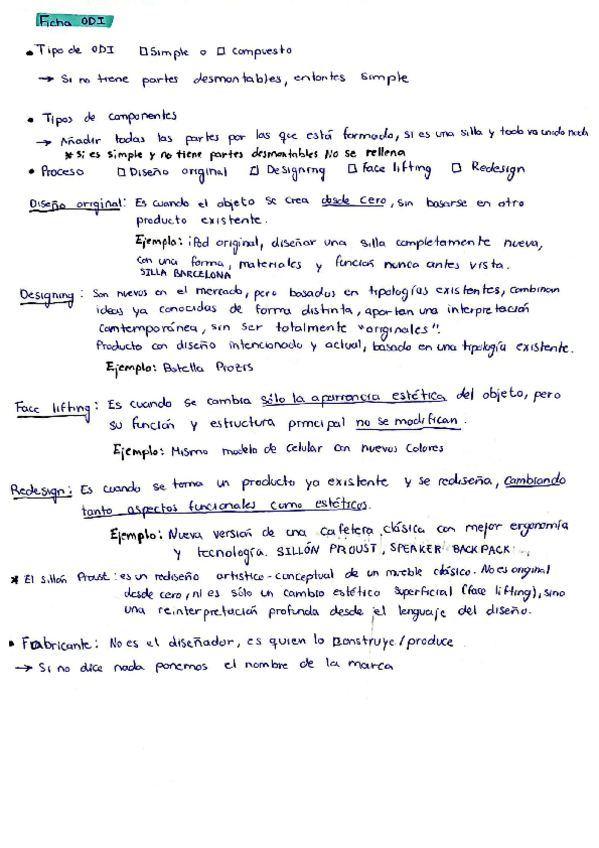 Ficha ODI
• Tipo de ODI □ Simple o □ compuesto
→ Si no tiene partes desmontables, entontes simple
• Tipos de componentes
→ Añadir todas las partes por las que está formado, si es una silla y todo va unido nada
* Si es simple y no tiene partes desmontables No se rellena
• Proceso □ Diseño original □ Designing □ Face lifting □ Redesign
Diseño original: Es cuando el objeto se crea desde cero, sin basarse en otro
producto existente.
Ejemplo: iPod original, diseñar una silla completamente nueva,
con una forma, materiales y función nunca antes vista.
SILLA BARCELONA
Designing: Son nuevos en el mercado, pero basados en tipologías existentes, combinan
ideas ya conocidas de forma distinta, aportan una interpretación
comtemporánea, sin ser totalmente "originales".
Producto con diseño intencionado y actual, basado en una tipología existente.
Ejemplo: Botella Prozis
Face lifting: Es cuando se cambia sólo la aparrancia estética del objeto, pero
su función y estructura principal no se modifican.
Ejemplo: Mismo modelo de celular con nuevos colores
Redesign: Es cuando se toma un producto ya existente y se rediseña, cambiando
tanto aspectos funcionales como estéticos.
Ejemplo: Nueva versión de una cafetera clásica con mejor ergonomía
y tecnología. SILLÓN PROUST, SPEAKER BACKPACK
* El sillón Proust: es un rediseño artístico-conceptual de un mueble clásico. No es original
desde cero, ni es sólo un cambio estético superficial (face lifting), sino
una reinterpretación profunda desde el lenguaje del diseño.
• Frabricante: No es el diseñador, es quien lo construye/produce
→ Si no dice nada ponemos el nombre de la marca